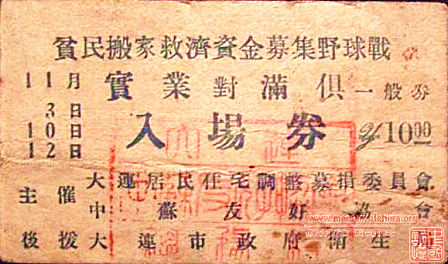 貧民搬家救濟資金募集野球戰
11月 3日 10日 12日
實業對滿俱 一般券
入場券 10.00
主催 大連居民住宅調整募捐委員會
中蘇友好協會
後援 大連市政府衛生